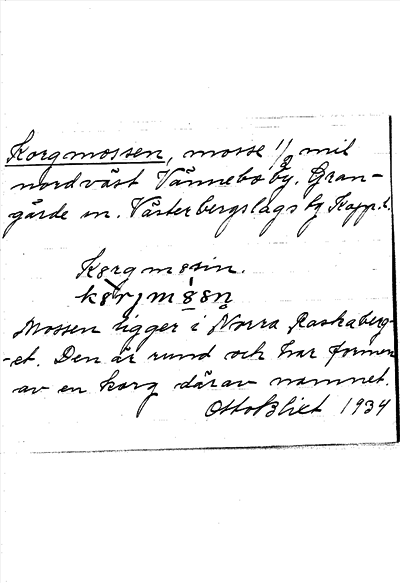 Korgmossen, mosse 1/2 mil
nordväst Vännebo by. Gran-
gärde sn. Västerbergslags hg Kopp. l.
Kørgmøsin.
Mossen ligger i Norra Raskaberg-
-et. Den är rund och har formen
av en korg därav namnet.
Otto Blixt 1934